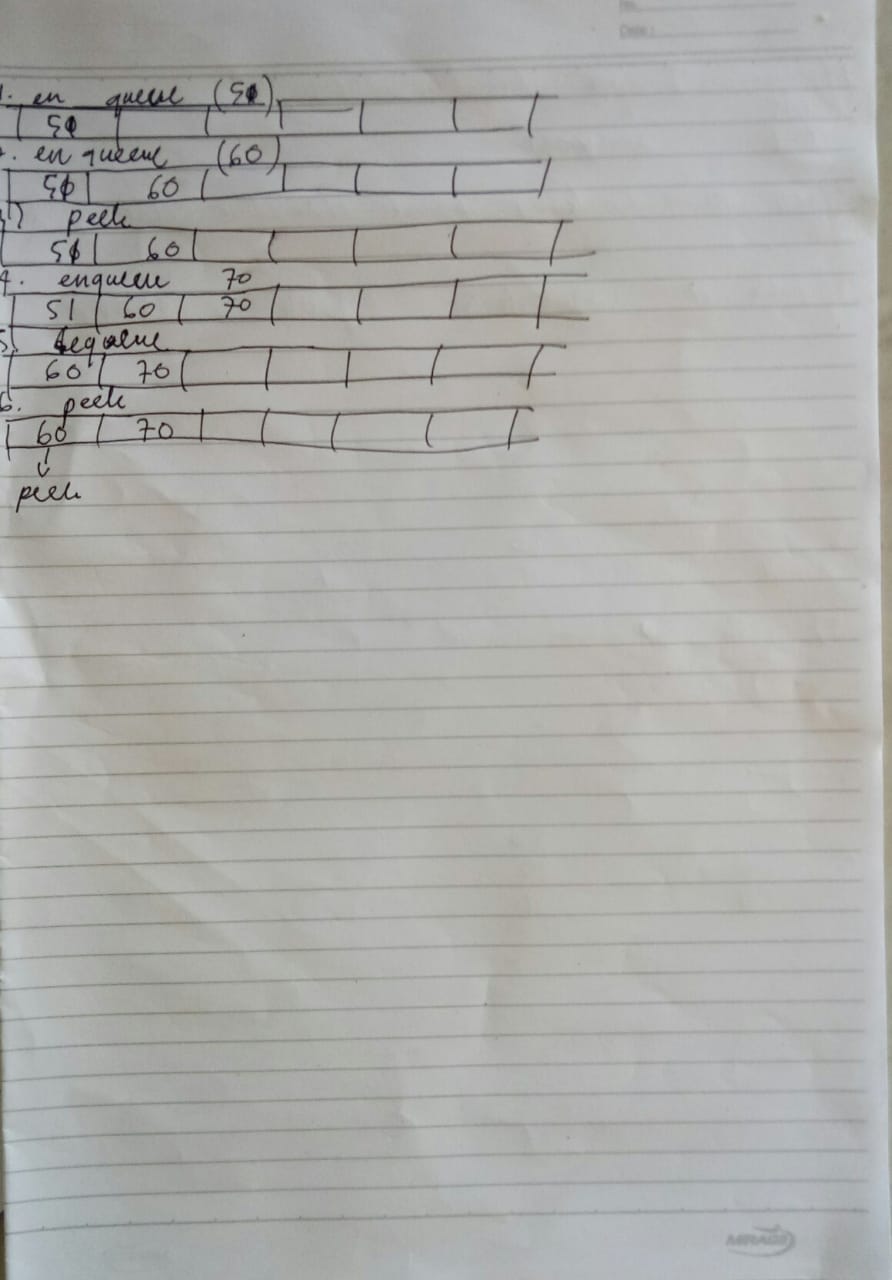 Date:
1. en queue (51)
51
2. en queue (60)
51 60
3) peek
51 60
4. enqueue 70
51 60 70
5. dequeue
60 70
6. peek
60 70
peek
MIRAGE